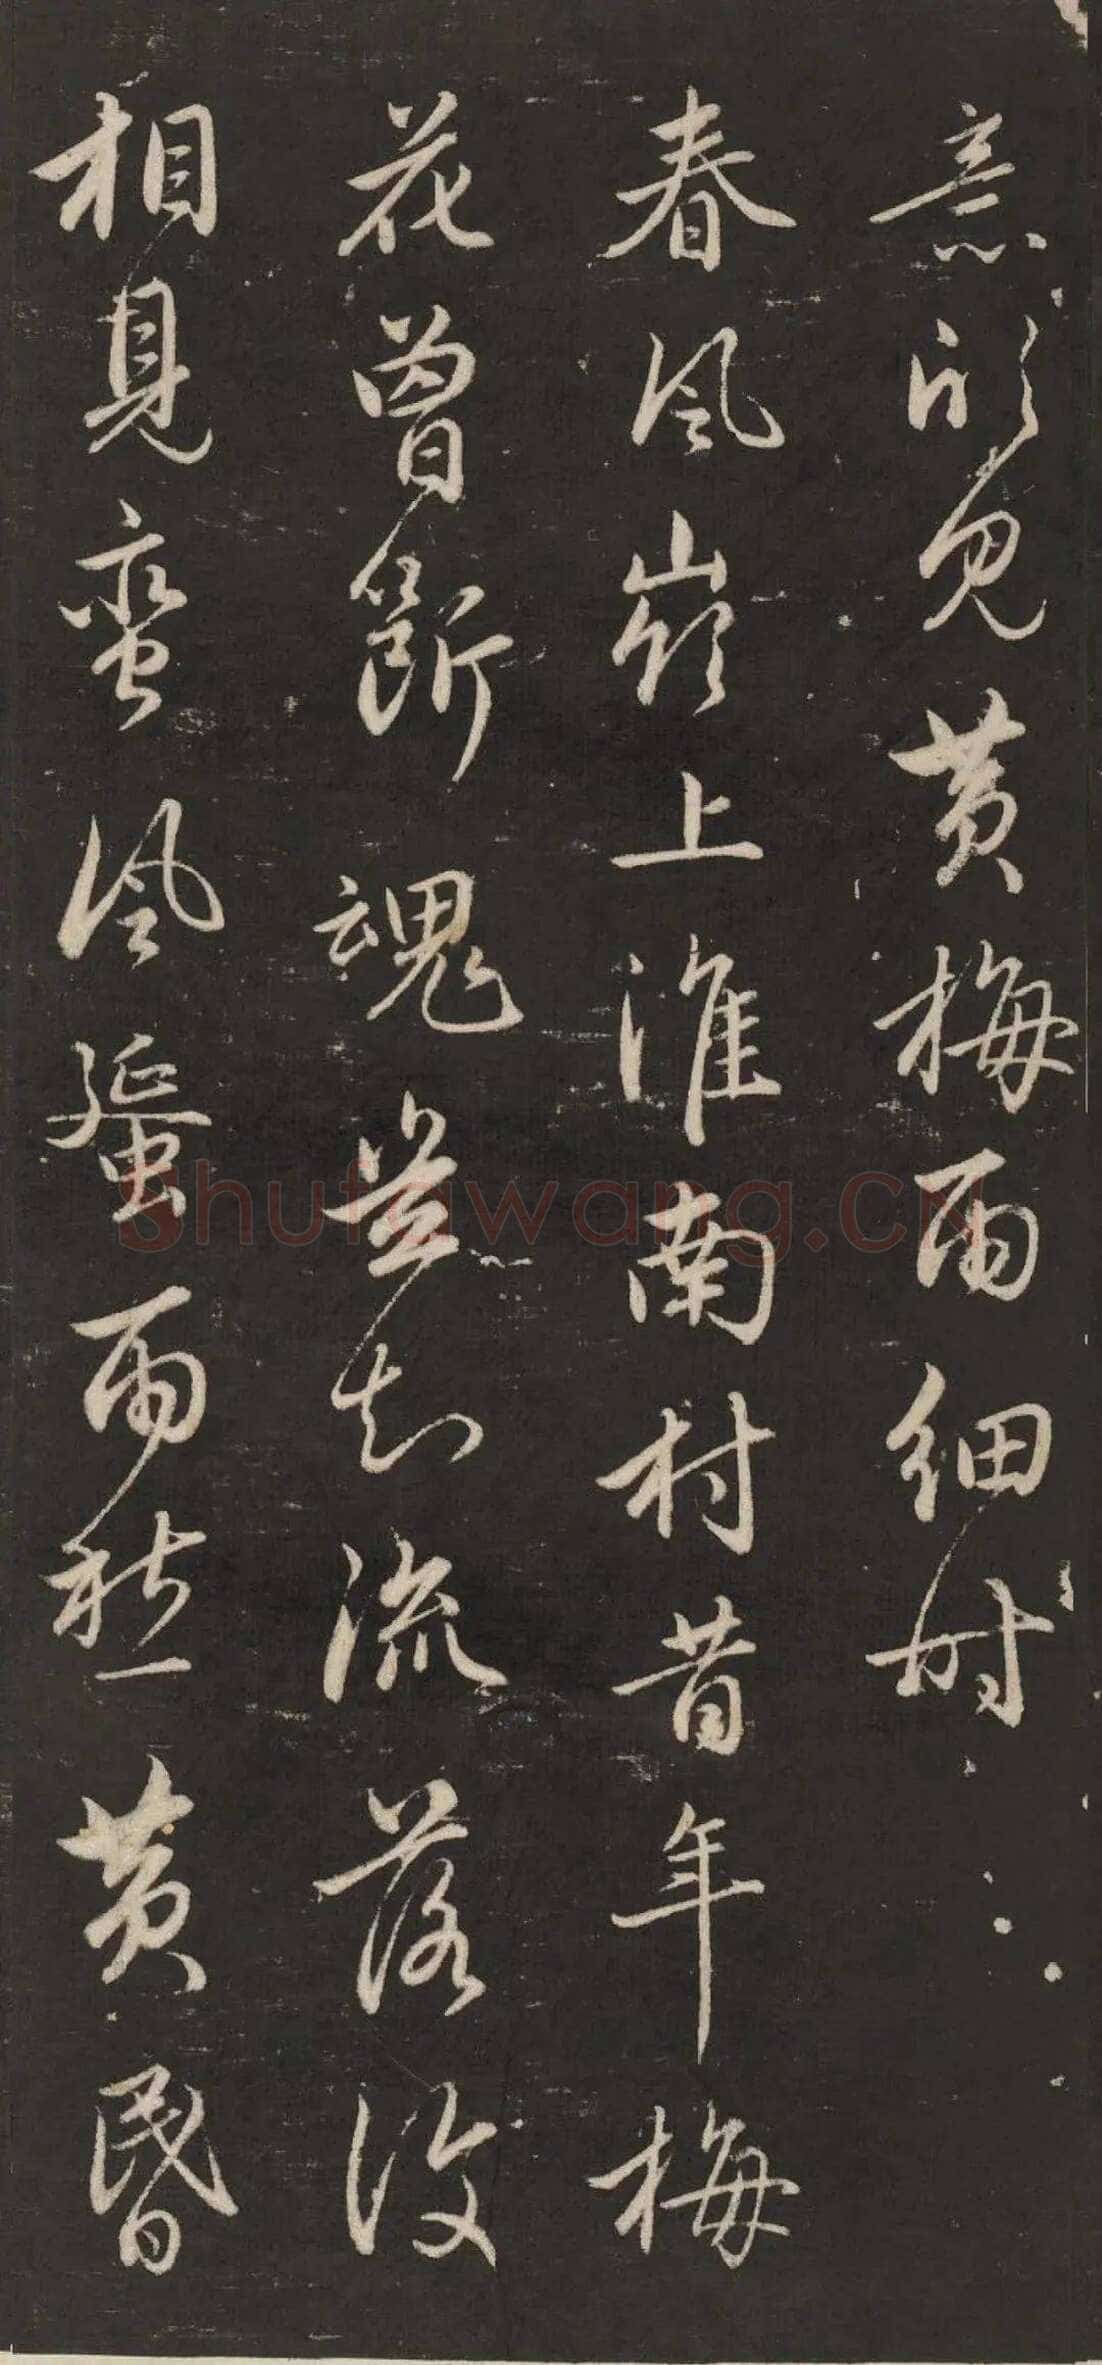 意欣見黄梅雨細時
春風嶺上淮南村昔年梅
花曾斷魂豈知流落復
相見蠻風蜑雨愁黄昏
Shufawang.CN